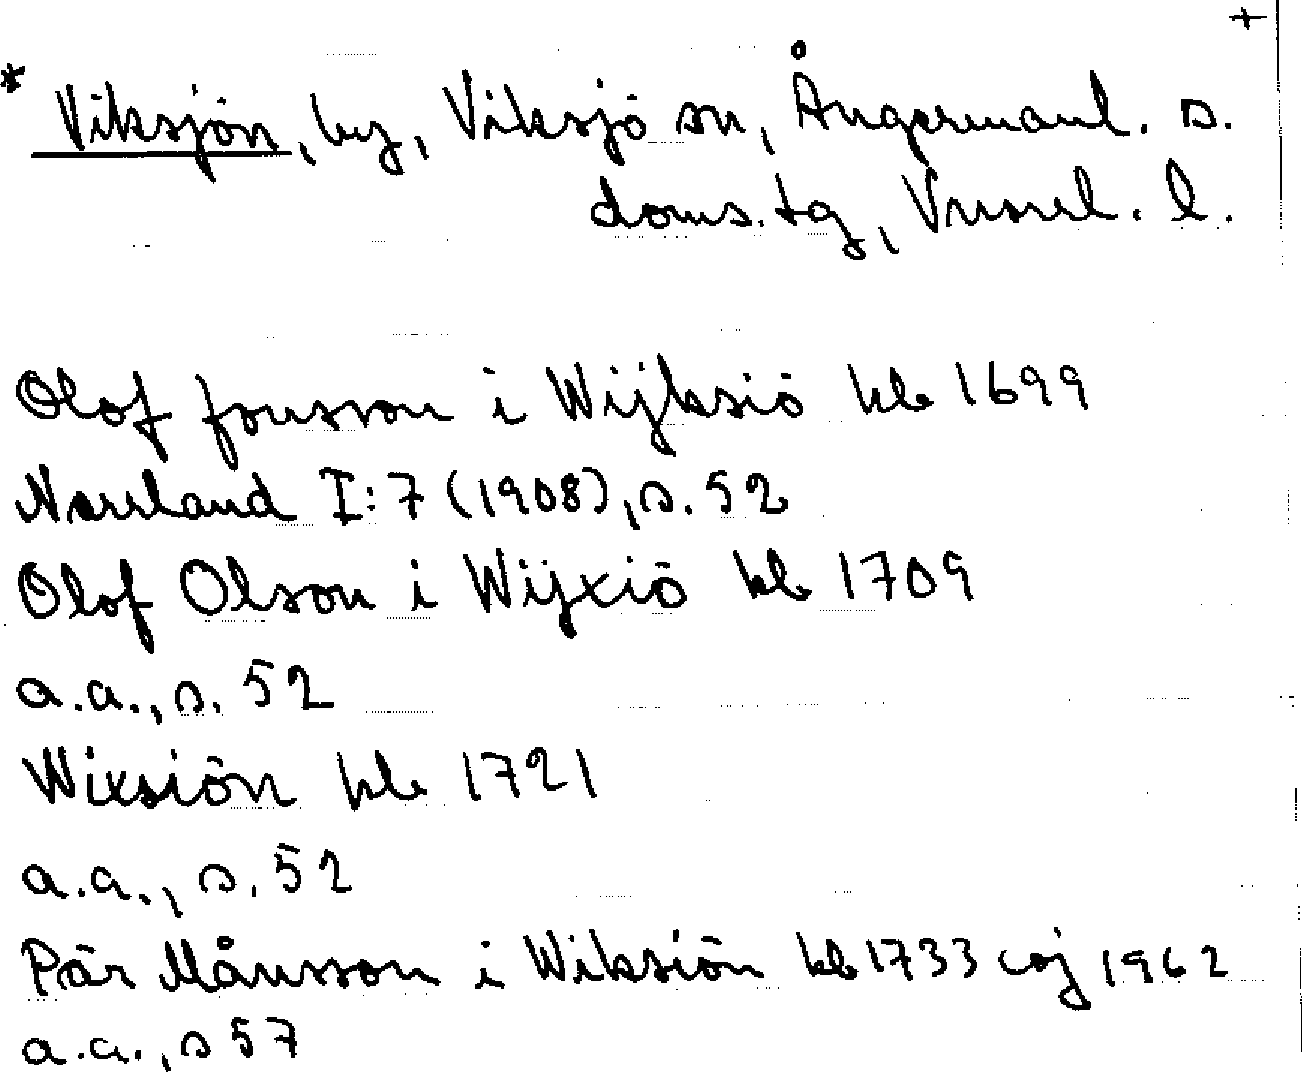 +
* Viksjön, by, Viksjö sn, Ångermanl. s.
doms. tg, Vnorrl. l.
Olof Jonsson i Wijksiö kb 1699
Norrland I:7 (1908), s. 52
Olof Olson i Wijxiö kb 1709
a.a., s. 52
Wixsiön kb 1721
a.a., s. 52
Pär Månsson i Wiksiön kb 1733 coj 1962
a.a., s 57